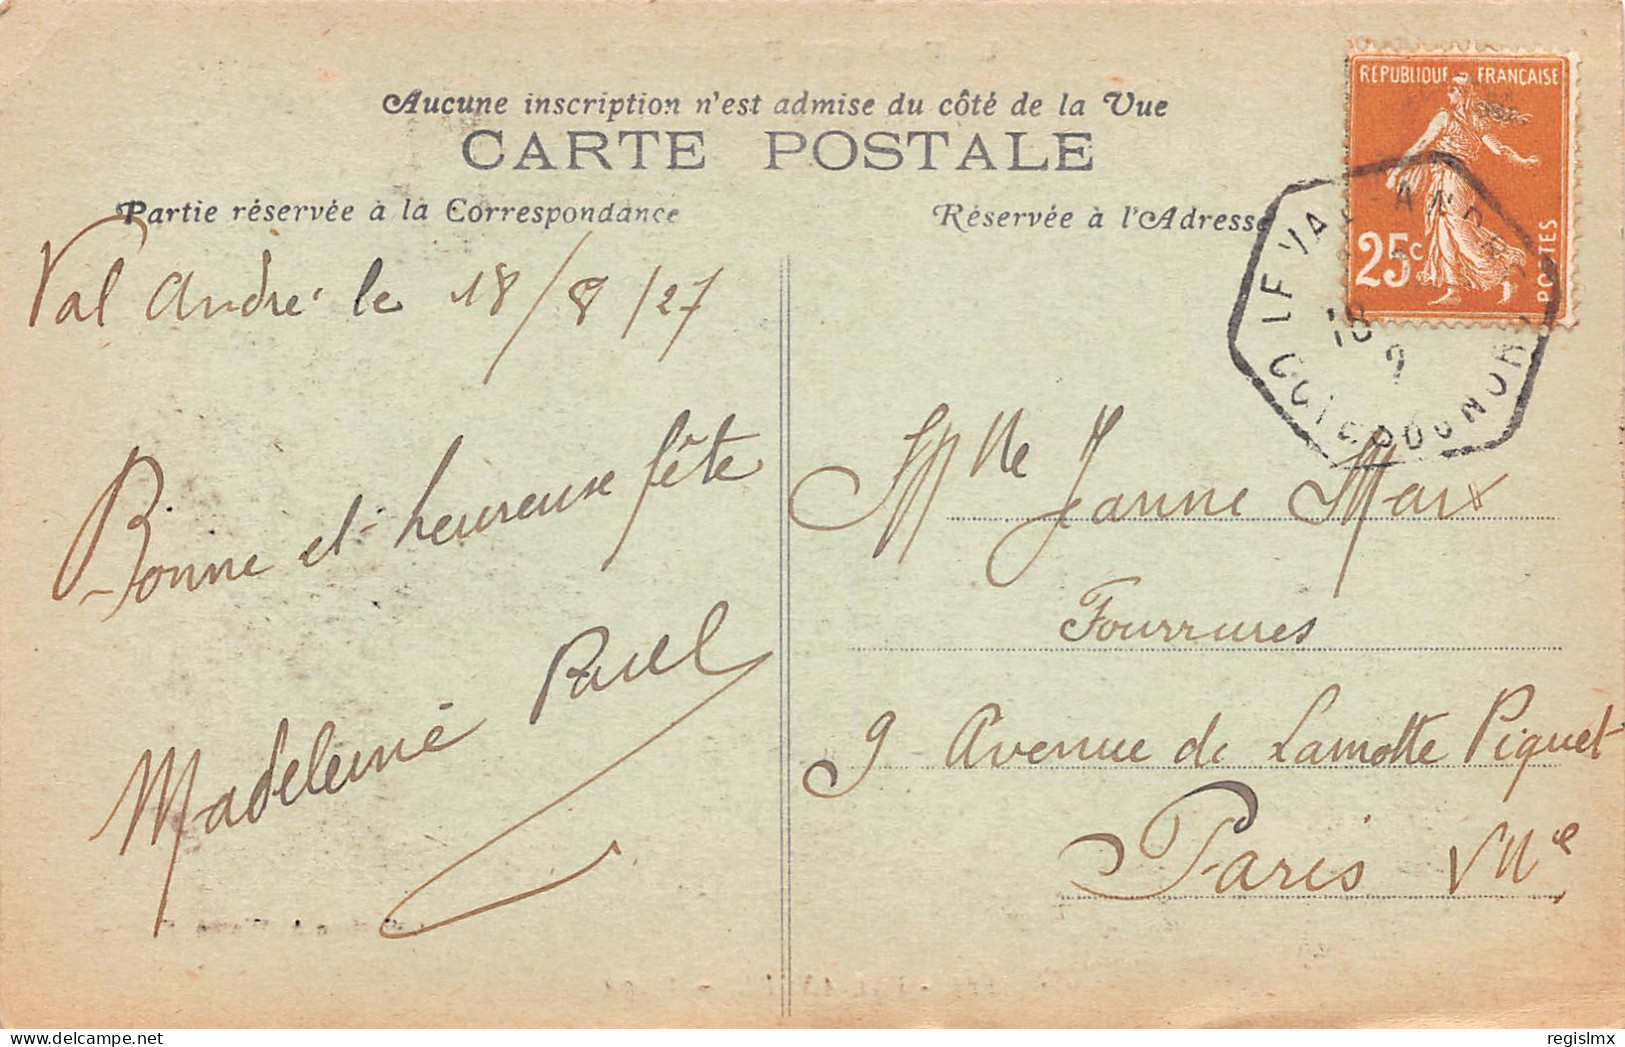 Aucune inscription n'est admise du côté de la Vue
CARTE POSTALE
Partie réservée à la Correspondance
Réservée à l'Adresse
REPUBLIQUE FRANÇAISE
25c
POSTES
LE VAL-ANDRE
18
COTES DU NORD
Val André le 18/8/27
Bonne et heureuse fête
Madeleine Paul
Mlle Jeanne Marx
Fourrures
9 Avenue de Lamotte Piquet
Paris VIIe
regislmx